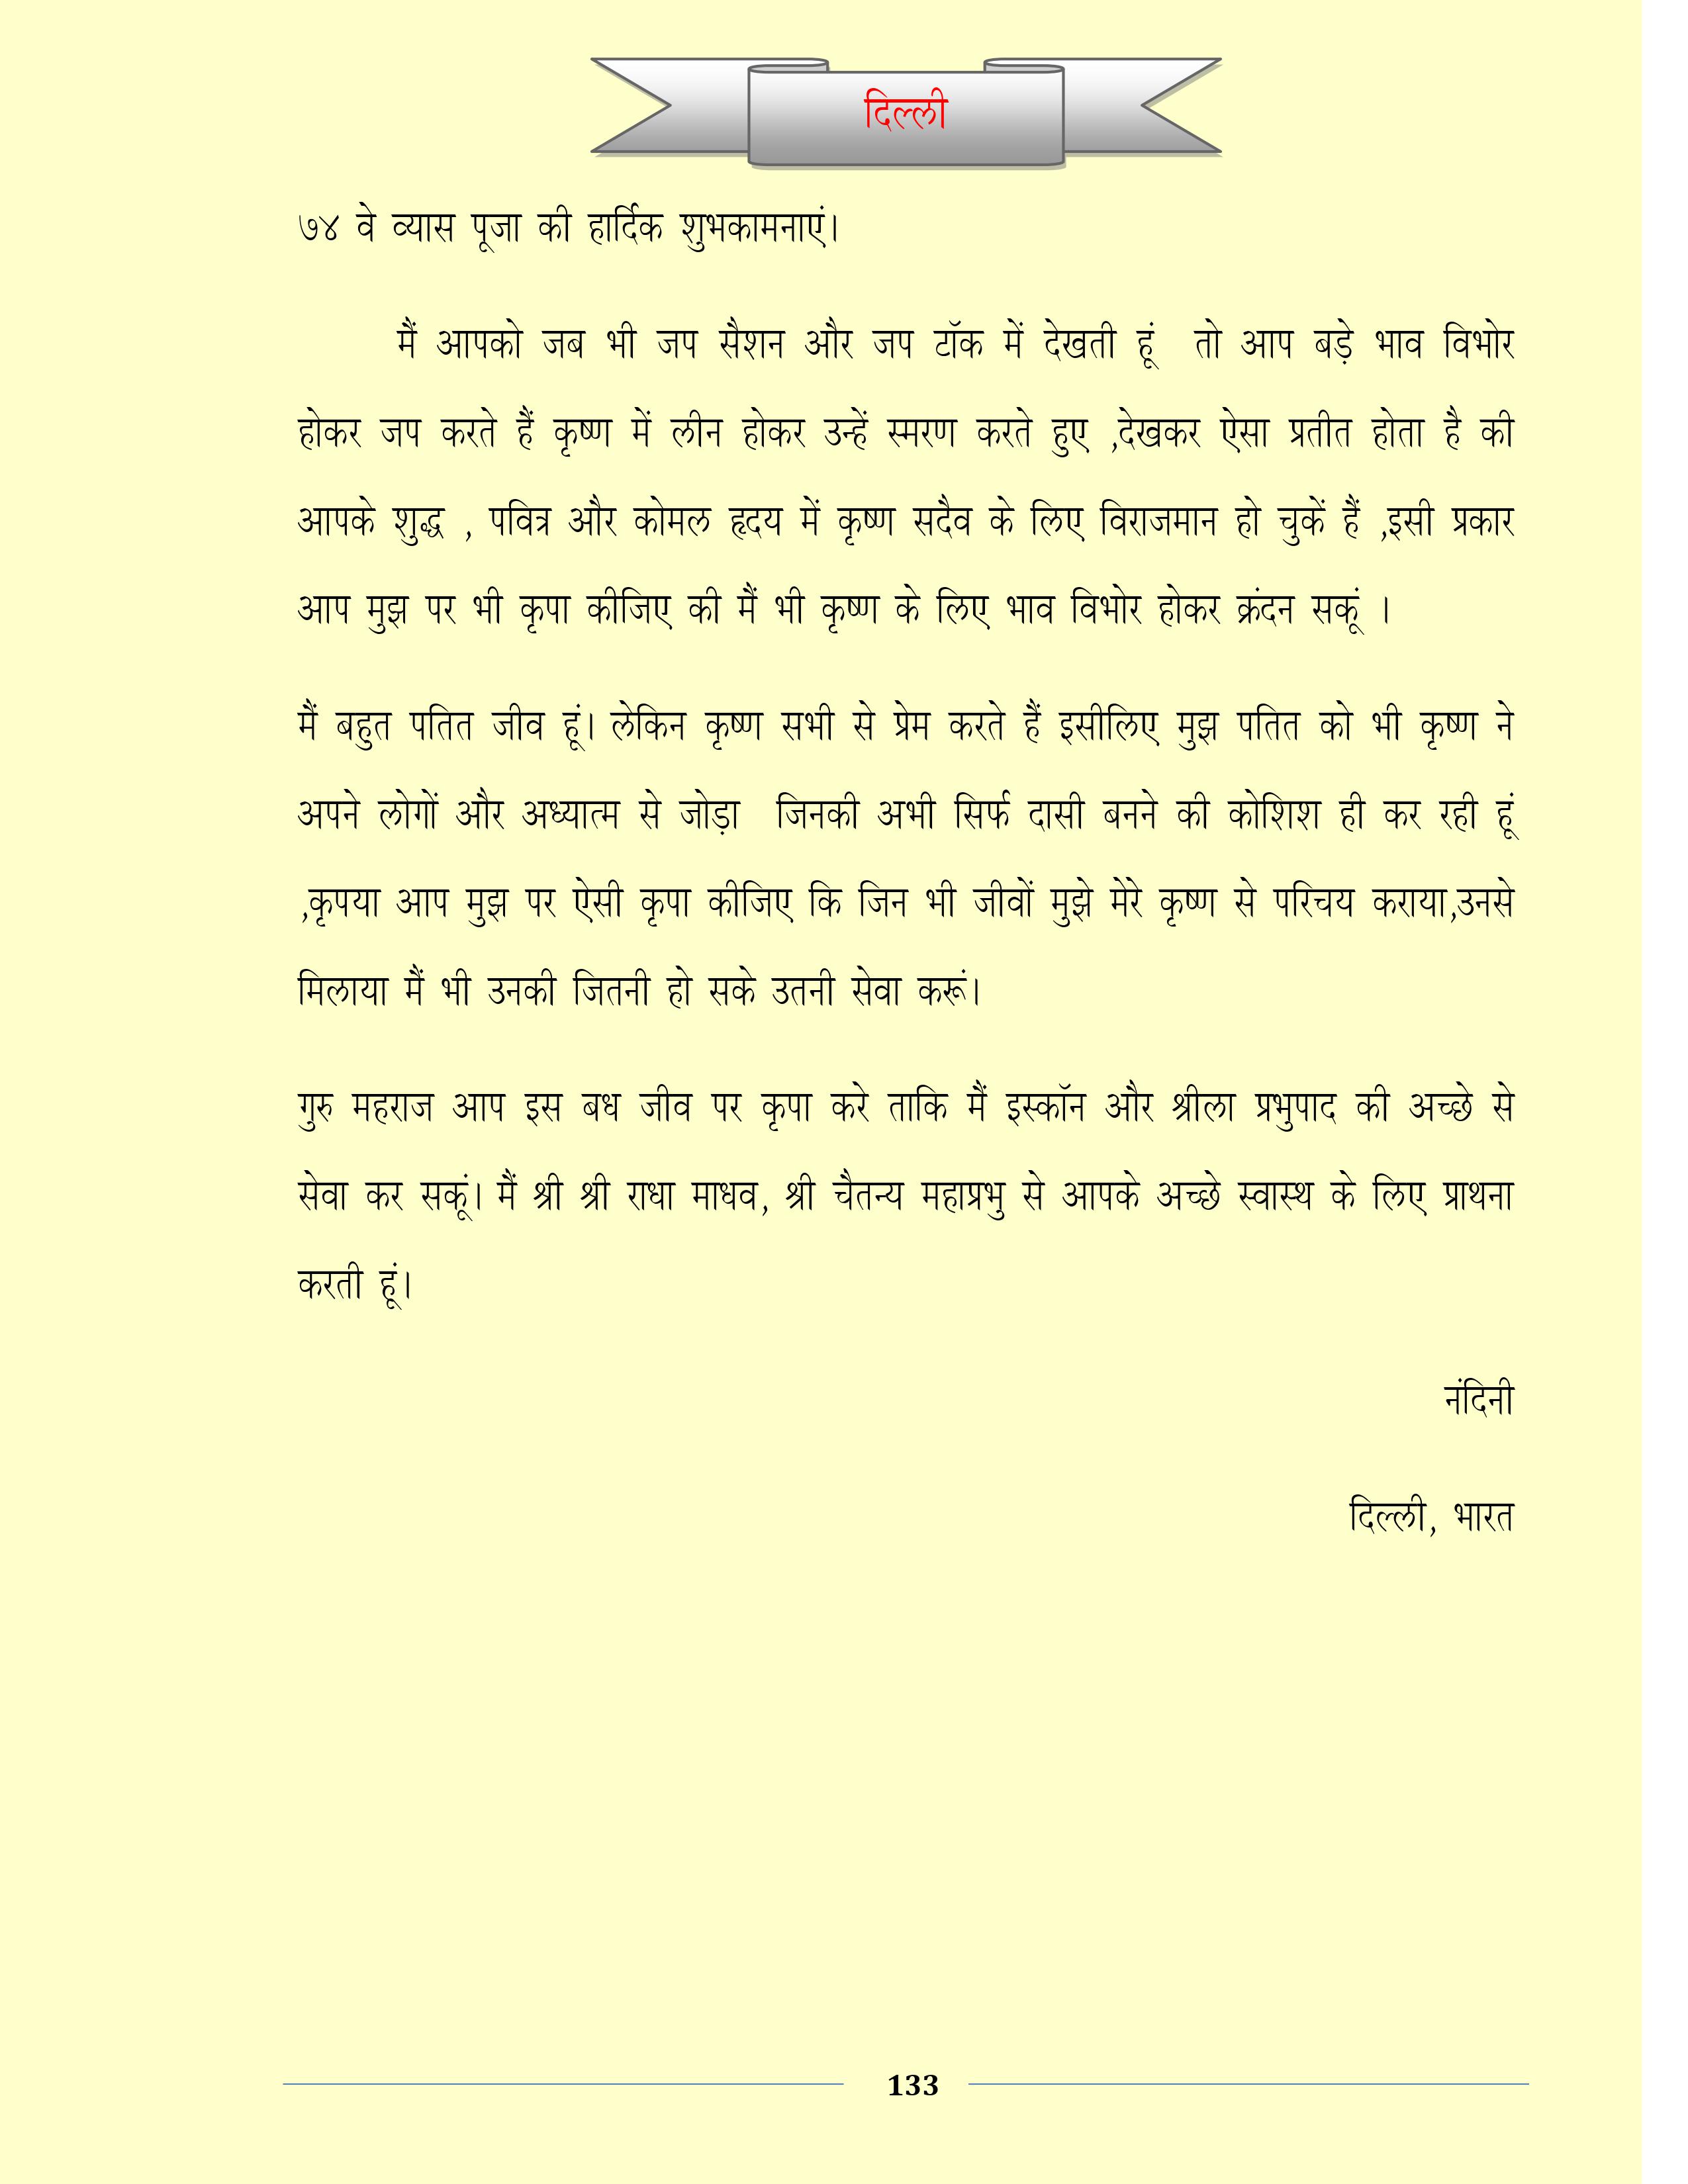 दिल्ली
७४ वे व्यास पूजा की हार्दिक शुभकामनाएं।
मैं आपको जब भी जप सैशन और जप टॉक में देखती हूं तो आप बड़े भाव विभोर
होकर जप करते हैं कृष्ण में लीन होकर उन्हें स्मरण करते हुए ,देखकर ऐसा प्रतीत होता है की
आपके शुद्ध , पवित्र और कोमल हृदय में कृष्ण सदैव के लिए विराजमान हो चुकें हैं ,इसी प्रकार
आप मुझ पर भी कृपा कीजिए की मैं भी कृष्ण के लिए भाव विभोर होकर क्रंदन सकूं ।
मैं बहुत पतित जीव हूं। लेकिन कृष्ण सभी से प्रेम करते हैं इसीलिए मुझ पतित को भी कृष्ण ने
अपने लोगों और अध्यात्म से जोड़ा जिनकी अभी सिर्फ दासी बनने की कोशिश ही कर रही हूं
,कृपया आप मुझ पर ऐसी कृपा कीजिए कि जिन भी जीवों मुझे मेरे कृष्ण से परिचय कराया,उनसे
मिलाया मैं भी उनकी जितनी हो सके उतनी सेवा करूं।
गुरु महराज आप इस बध जीव पर कृपा करे ताकि मैं इस्कॉन और श्रीला प्रभुपाद की अच्छे से
सेवा कर सकूं। मैं श्री श्री राधा माधव, श्री चैतन्य महाप्रभु से आपके अच्छे स्वास्थ के लिए प्राथना
करती हूं।
नंदिनी
दिल्ली, भारत
133